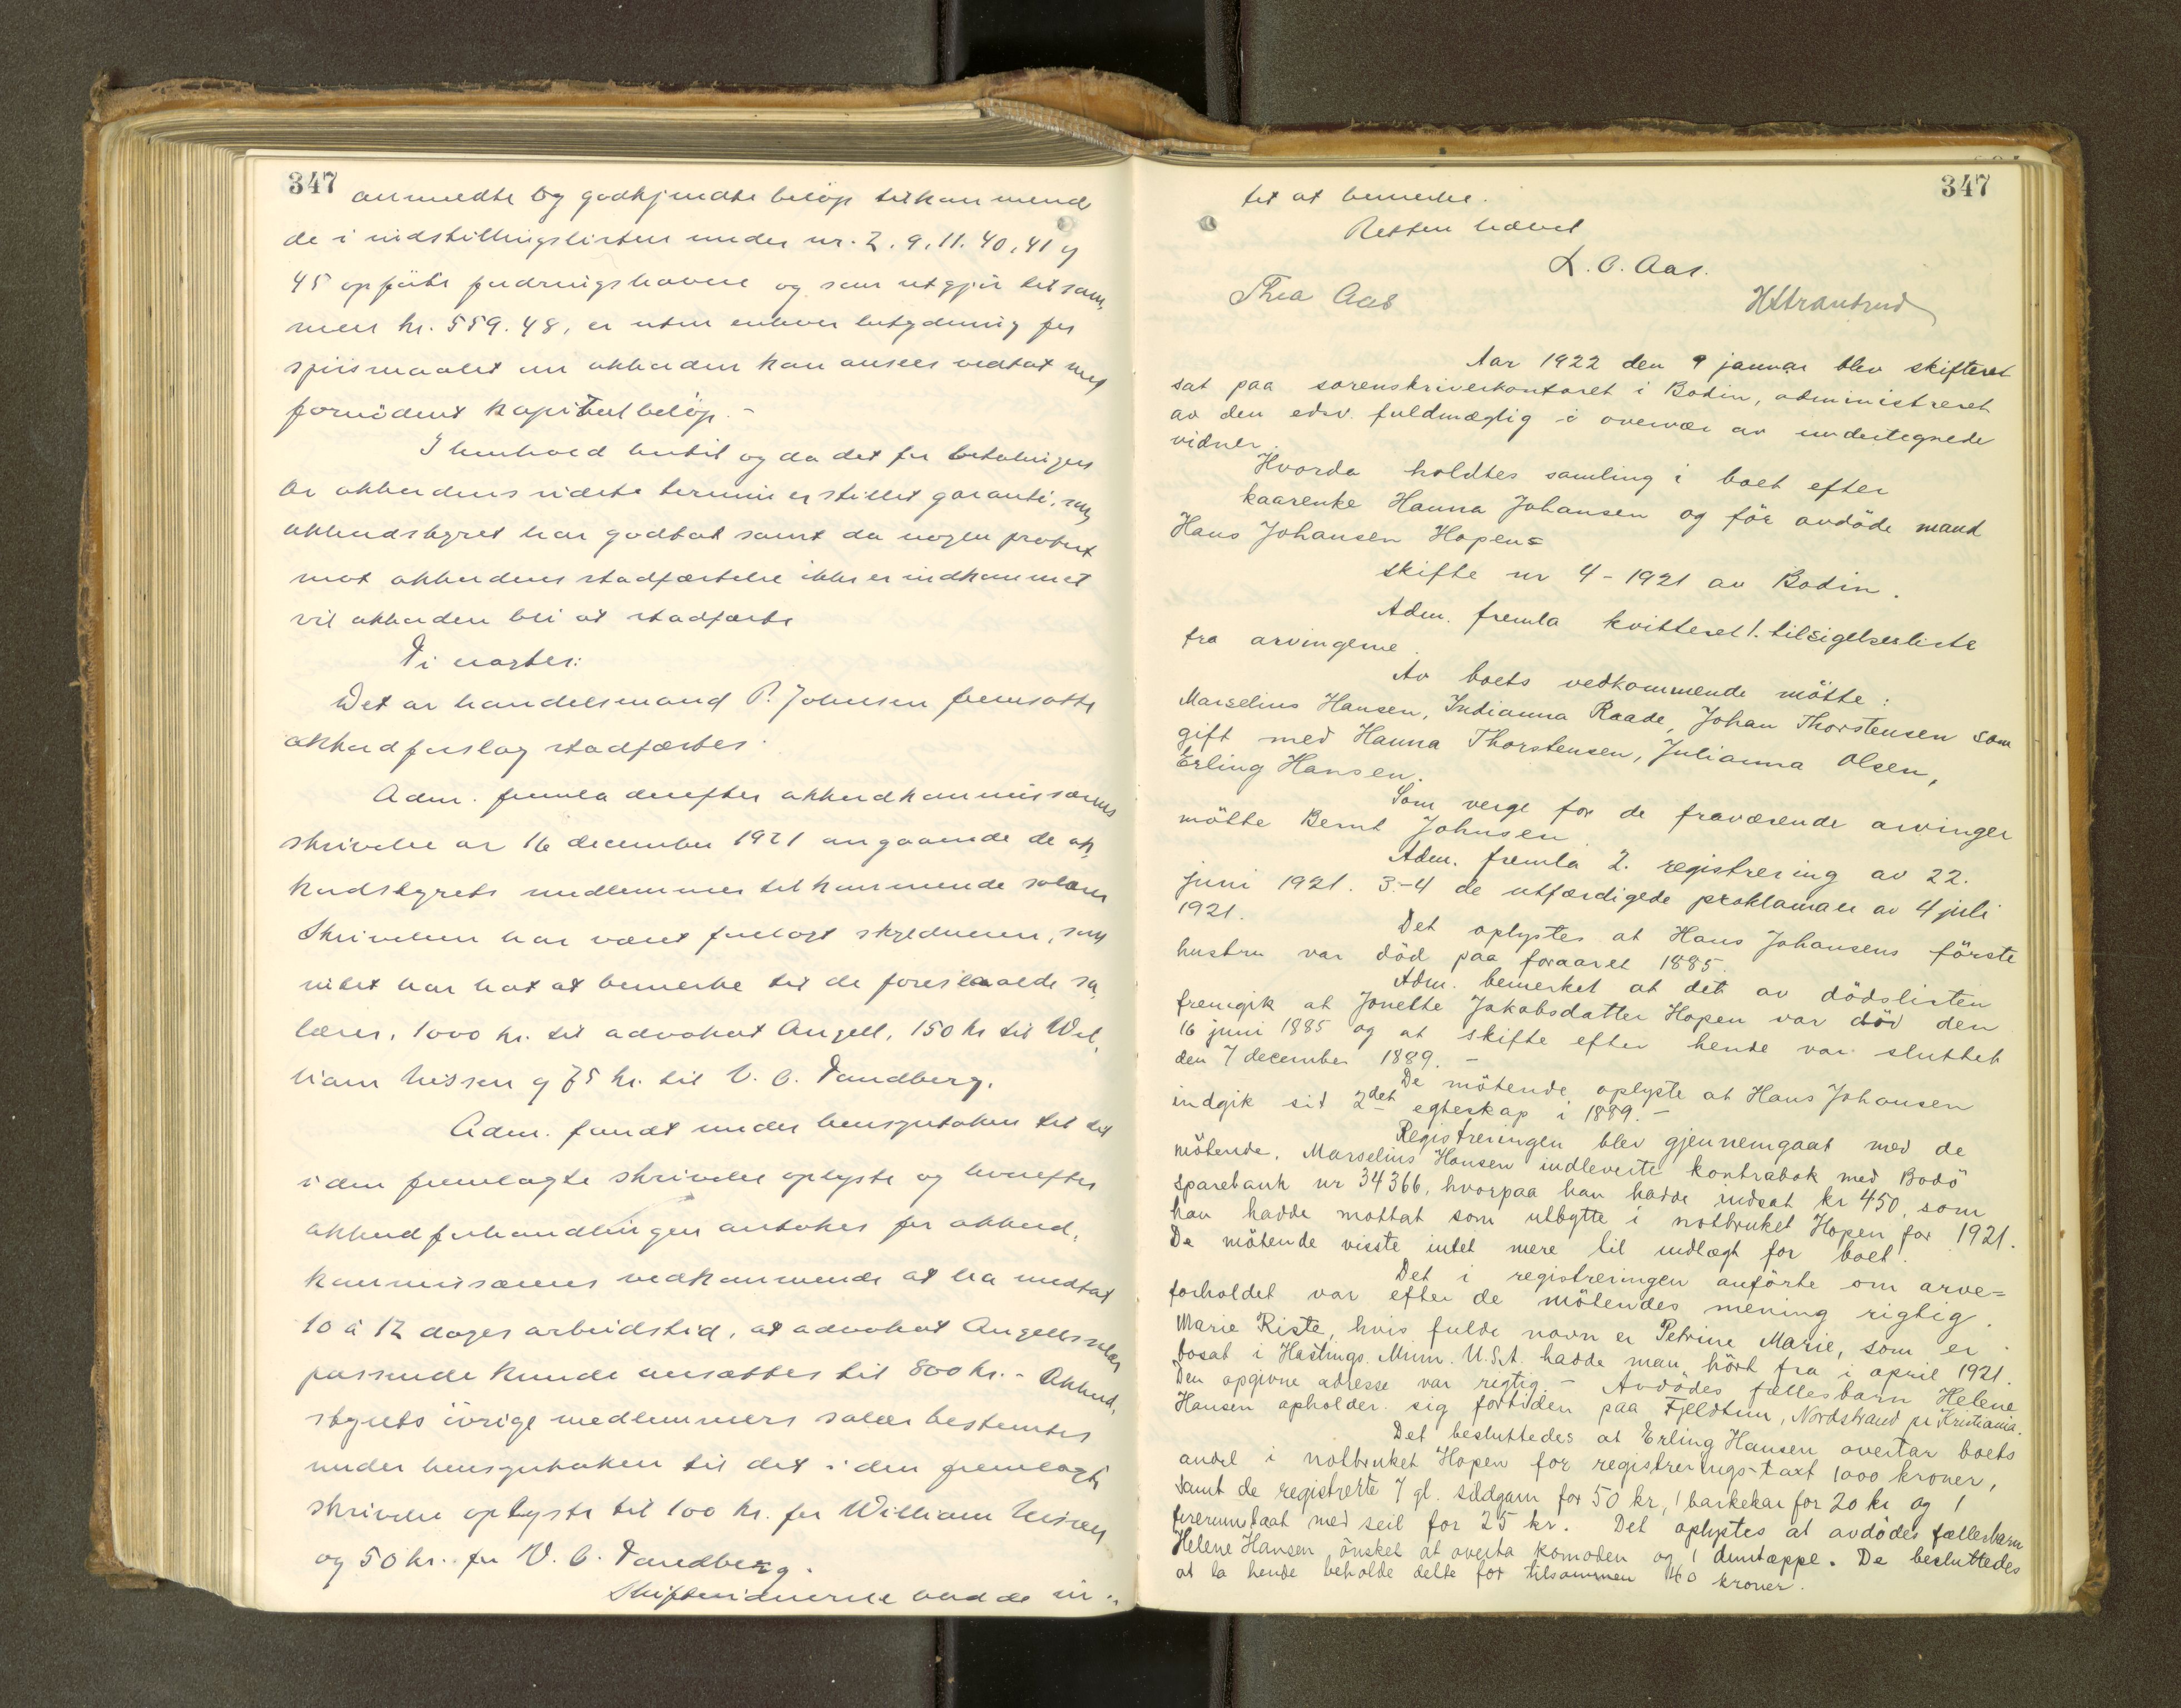 347
anmeldte og godkjendte beløp tilkommend
de i indstillingslisten under nr. 2. 9. 11. 40. 41 og
45 opførte fordringshavere og som utgjør tilsam,
men kr. 559.48, er uten enhver betydning for
spørsmaalet om akkorden kan ansees vedtat med
fornødent kapitalbeløp. -
I henhold hertil og da det for betalingen
av akkordens sidste termin er stillet garanti, som
akkordstyret har godtat samt da nogen protest
mot akkordens stadfæstelse ikke er indkommet
vil akkorden bli at stadfæste
Ti eragtes:
Det av handelsmand P. Johnsen fremsatte
akkordforslag stadfæstes.
Adm. fremla derefter akkordkommissærens
skrivelse av 16 december 1921 angaaende de ak,
kordstyrets medlemmer tilkommende salærer
Skrivelsen har været forelagt skyldneren, som
intet har hat at bemerke til de foreslaaede sa,
lærer, 1000 kr. til advokat Angell, 150 kr til Wil,
liam Nissen og 75 kr. til V. C. Sandberg.
Adm. fandt under hensyntaken til det
i den fremlagte skrivelse oplyste og hvorefter
akkordforhandlingen antakes for akkord,
kommissærens vedkommende at ha medtat
10 à 12 dages arbeidstid, at advokat Angells salær
passende kunde ansættes til 800 kr. - Akkord,
styrets øvrige medlemmers salær bestemtes
under hensyntaken til det i den fremlagte
skrivelse oplyste til 100 kr. for William Nissen
og 50 kr. for V. C. Sandberg.
Skiftevidnerne hadde in-
347
tet at bemerke.
Retten hævet
L. C. Aas.
Thea Aas
Aar 1922 den 9 januar blev skifteret
sat paa sorenskriverkontoret i Bodin, administreret
av den edsv. fuldmægtig i overvær av undertegnede
vidner.
Hvorda holdtes samling i boet efter
kaarenke Hanna Johansen og før avdøde mand
Hans Johansen Hopen=
skifte nr 4 - 1921 av Bodin.
Adm. fremla kvitteret 1. tilsigelsesliste
fra arvingerne.
Av boets vedkommende møtte:
Marselius Hansen, Indianna Raade, Johan Thorstensen som
gift med Hanna Thorstensen, Julianna Olsen,
Erling Hansen.
Som verge for de fraværende arvinger
møtte Bernt Johnsen
Adm. fremla 2. registrering av 22.
juni 1921. 3.-4 de utfærdigede proklamaer av 4 juli
1921.
Det oplystes at Hans Johansens første
hustru var død paa foraaret 1885.
Adm. bemerket at det av dødslisten
fremgik at Jonette Jakobsdatter Hopen var død den
16 juni 1885 og at skifte efter hende var sluttet
den 7 december 1889. -
De møtende oplyste at Hans Johansen
indgik sit 2det egteskap i 1889. -
Registreringen blev gjennemgaat med de
møtende. Marselius Hansen indleverte kontrabok med Bodø
sparebank nr 34366, hvorpaa han hadde indsat kr 450, som
han hadde mottat som utbytte i notbruket Hopen for 1921.
De møtende visste intet mere til indtægt for boet.
Det i registreringen anførte om arve=
forholdet var efter de møtendes mening rigtig.
Marie Riste, hvis fulde navn er Petrine Marie, som er
bosat i Hastings. Minn. U.S.A. hadde man hørt fra i april 1921.
Den opgivne adresse var rigtig - Avdødes fællesbarn Helene
Hansen opholder sig fortiden paa Fjeldtun, Nordstrand pr Kristiania.
Det besluttedes at Erling Hansen overtar boets
andel i notbruket Hopen for registrerings-taxt 1000 kroner,
samt de registrerte 7 gl. sildgarn for 50 kr, 1 barkekar for 20 kr og 1
firerumbaat med seil for 25 kr. Det oplystes at avdødes fællesbarn
Helene Hansen ønsket at overta komoden og 1 duntæppe. De besluttedes
at la hende beholde dette for tilsammen 40 kroner.